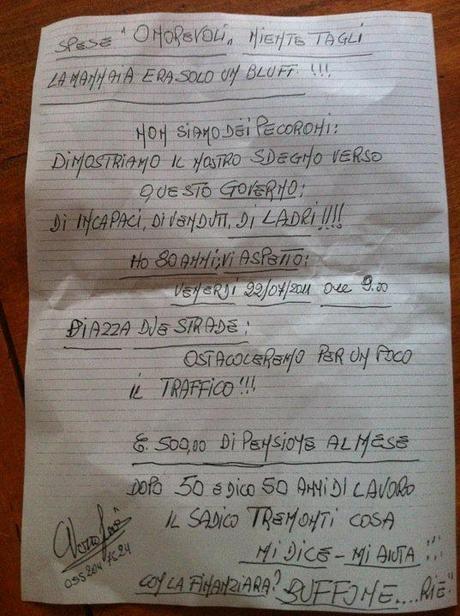 SPESE "ONOREVOLI" NIENTE TAGLI
LA MANNAIA ERA SOLO UN BLUFF !!!
NON SIAMO DEI PECORONI:
DIMOSTRIAMO IL NOSTRO SDEGNO VERSO
QUESTO GOVERNO:
DI INCAPACI, DI VENDUTI, DI LADRI!!!!
HO 80 ANNI; VI ASPETTO:
VENERDÌ 22/07/2011 ORE 9.00
PIAZZA DUE STRADE:
OSTACOLEREMO PER UN POCO
IL TRAFFICO!!!
E. 500,00 DI PENSIONE AL MESE
DOPO 50 E DICO 50 ANNI DI LAVORO
IL SADICO TREMONTI COSA
MI DICE - MI AIUTA !!!
CON LA FINANZIARA? BUFFONE....